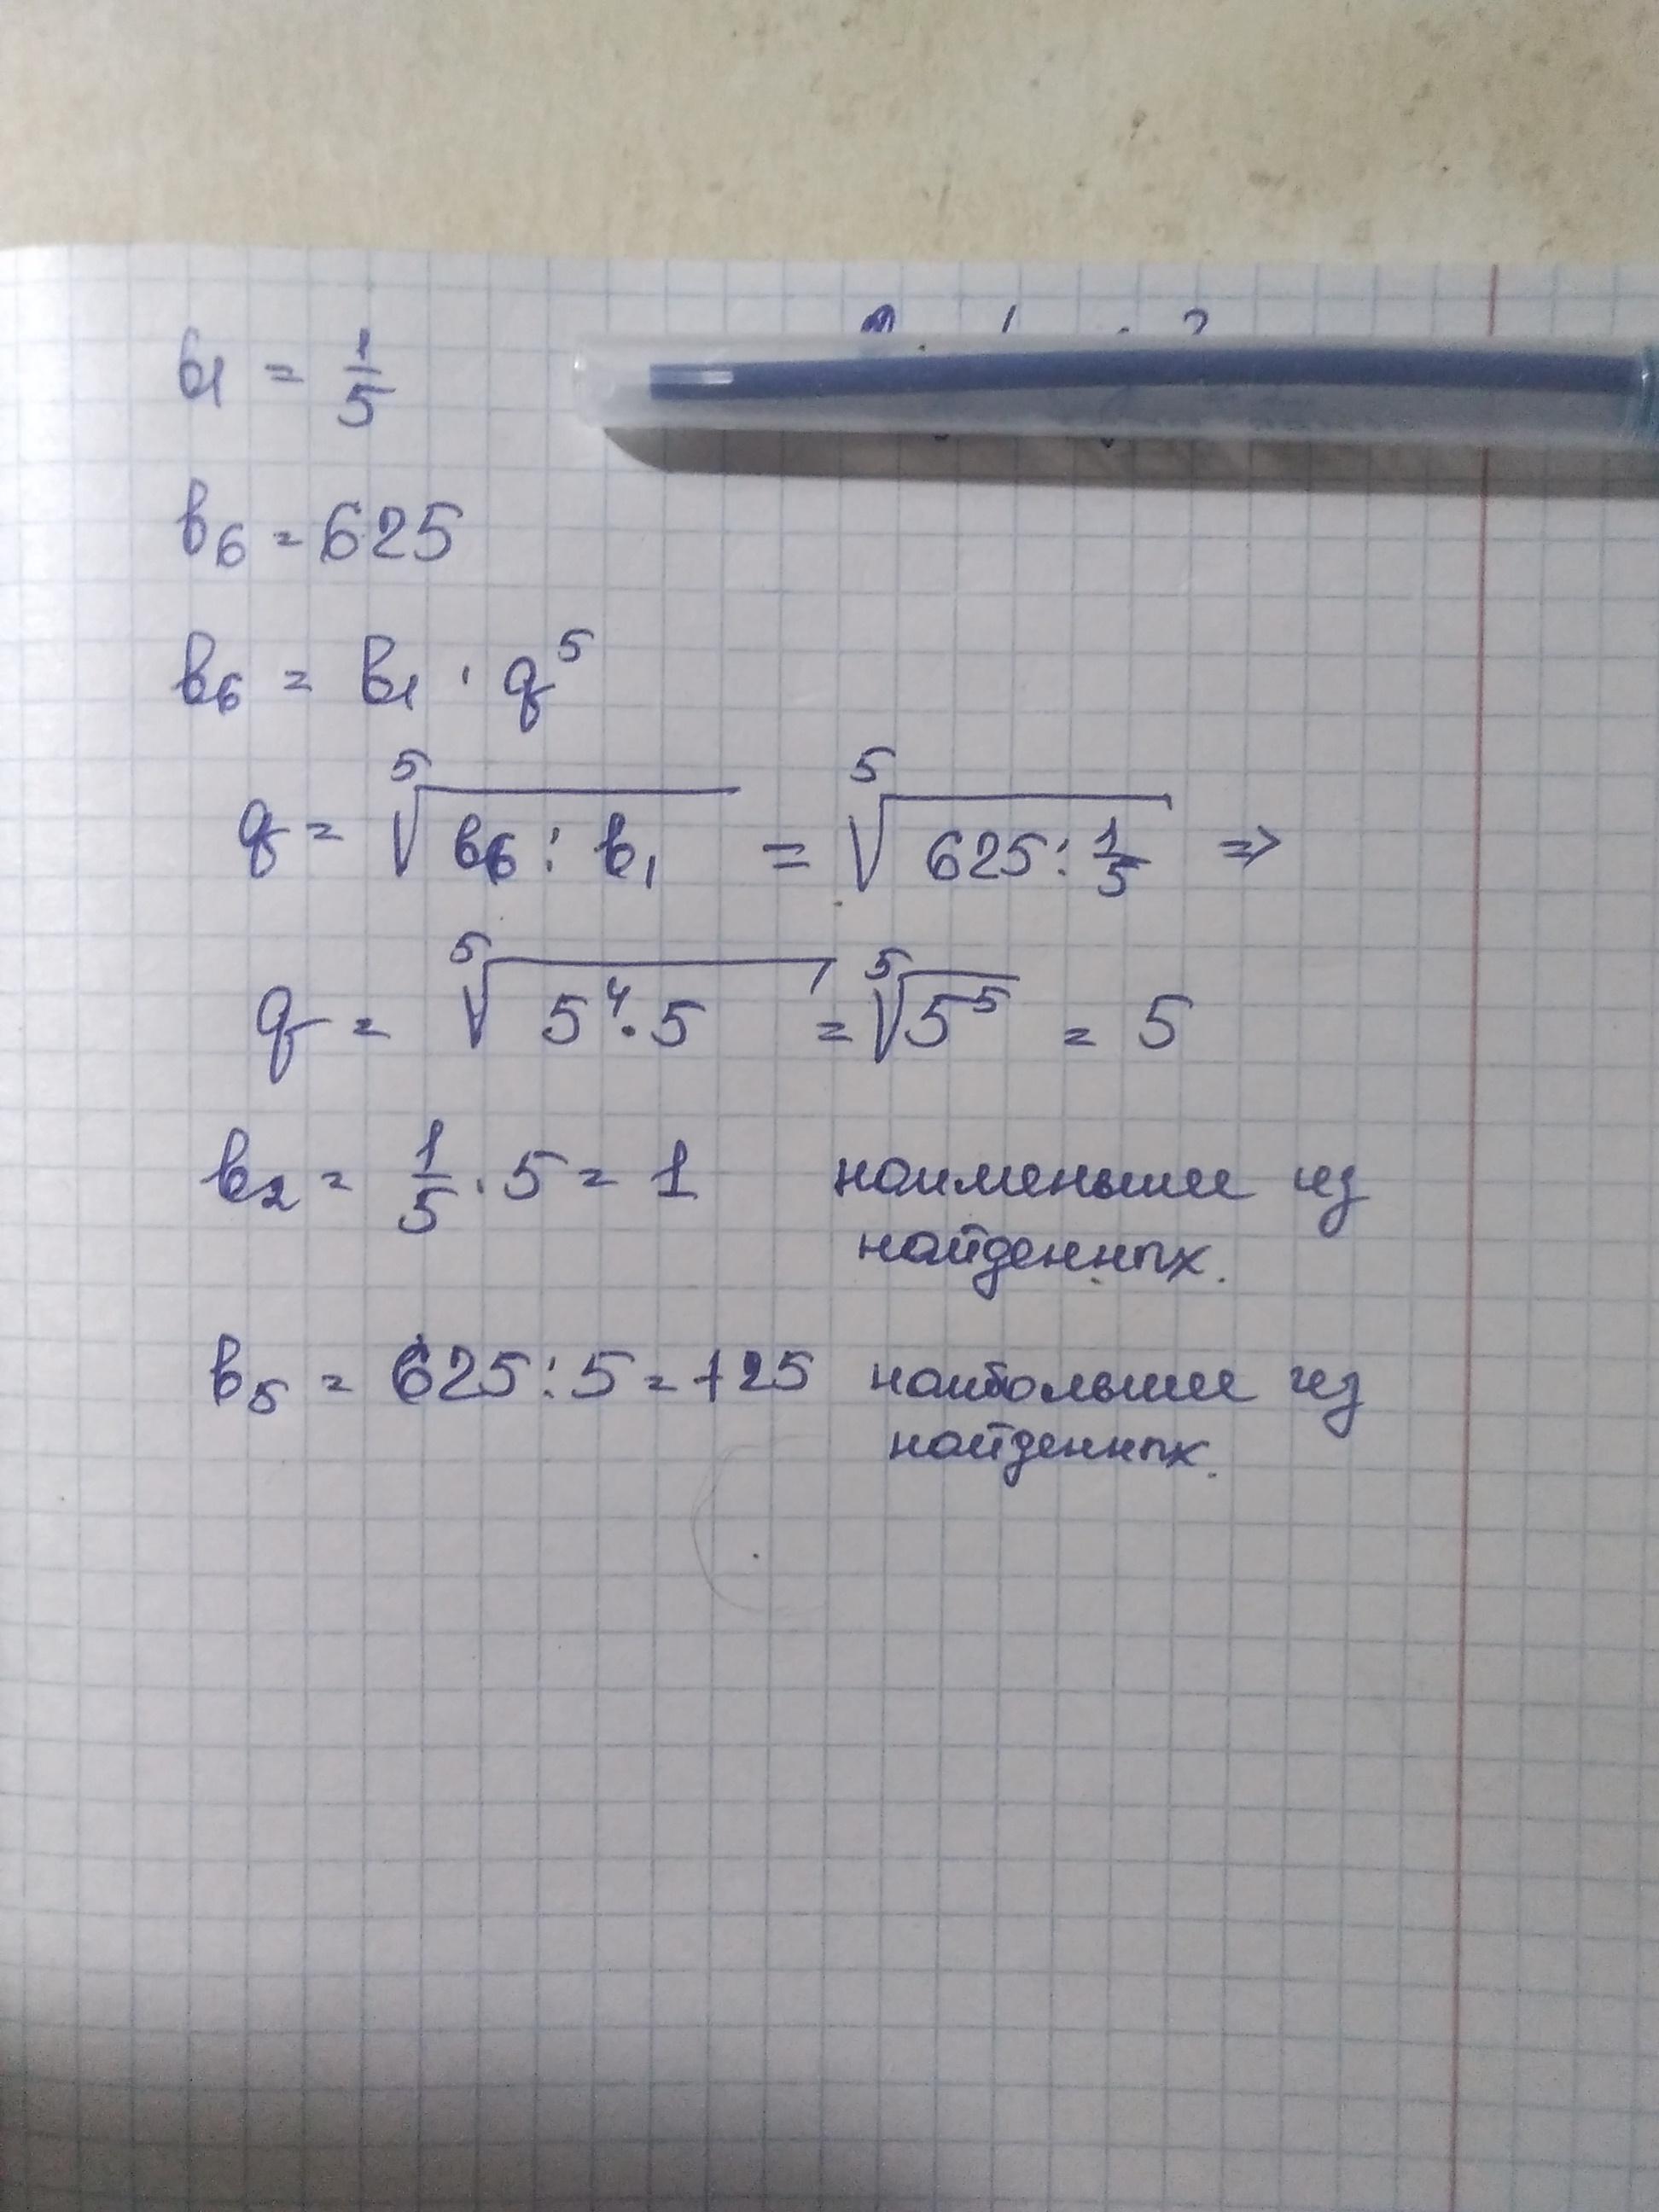 b₁ = 1/5
b₆ = 625
b₆ = b₁ · q⁵
q = ⁵√(b₆ : b₁) = ⁵√(625 : 1/5) ⇒
q = ⁵√(5⁴ · 5) = ⁵√(5⁵) = 5
b₂ = 1/5 · 5 = 1 наименьшее из
найденных.
b₅ = 625 : 5 = 125 наибольшее из
найденных.